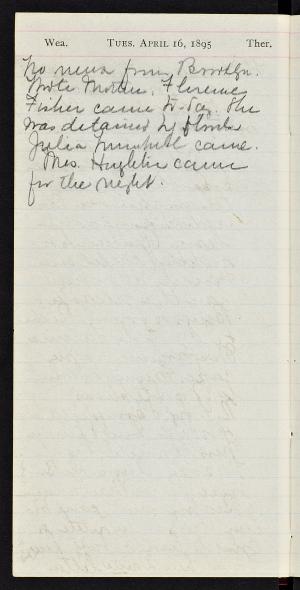 Wea. TUES. APRIL 16, 1895 Ther.
No news from Brooklyn.
Wrote Mother. Florence
Fisher came to-day. She
was detained by
Julia came.
Mrs. came
for the night.